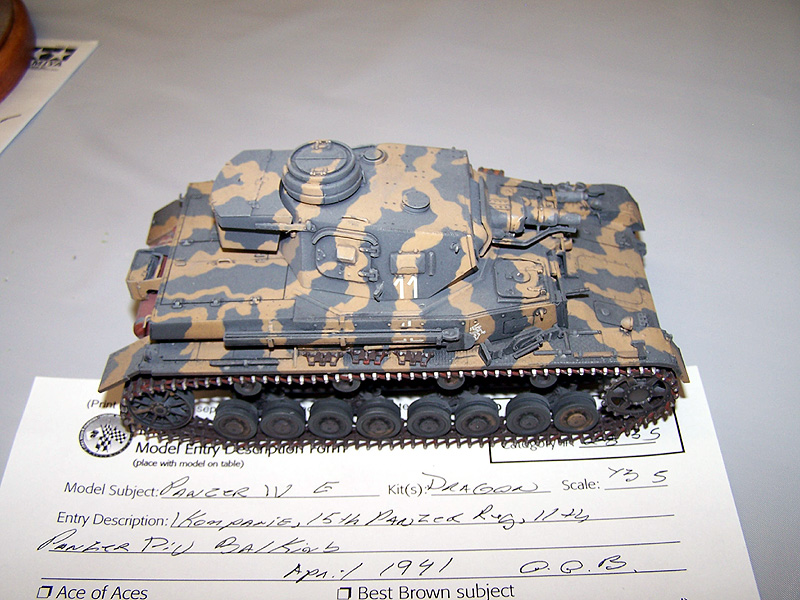 11
(Print
Model Entry Description Form
(place with model on table)
Model Subject: PANZER IV E Kit(s): DRAGON Scale: 1/35
Entry Description: 1 Kompanie, 15th Panzer Reg, 11th
Panzer Div Balkins
April 1941 O.O.B.
Ace of Aces Best Brown subject